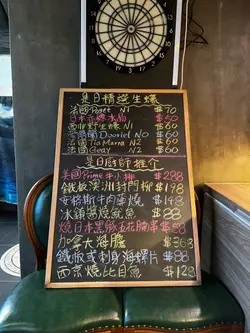 是日精選生蠔
法國Poget N1 $70
日本赤嶺水晶 $50
西班牙生蠔 N1 $60
愛爾蘭Dooriel No $60
法國Tia Marra N2 $60
法國Geay N2 $60
是日廚師推介
美國Prime牛小排 $288
鐵板澳洲封門柳 $198
安格斯牛肉薄燒 $148
冰鎮醬燒魷魚 $88
燒日本黑豚五花腩串 $88
加拿大海膽 $368
鐵板或刺身海螺片 $88
西京燒比目魚 $128